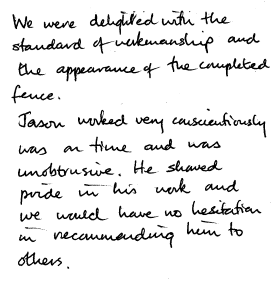 We were delighted with the
standard of workmanship and
the appearance of the completed
fence.
Jason worked very conscientiously
was on time and was
unobtrusive. He showed
pride in his work and
we would have no hesitation
in recommending him to
others.